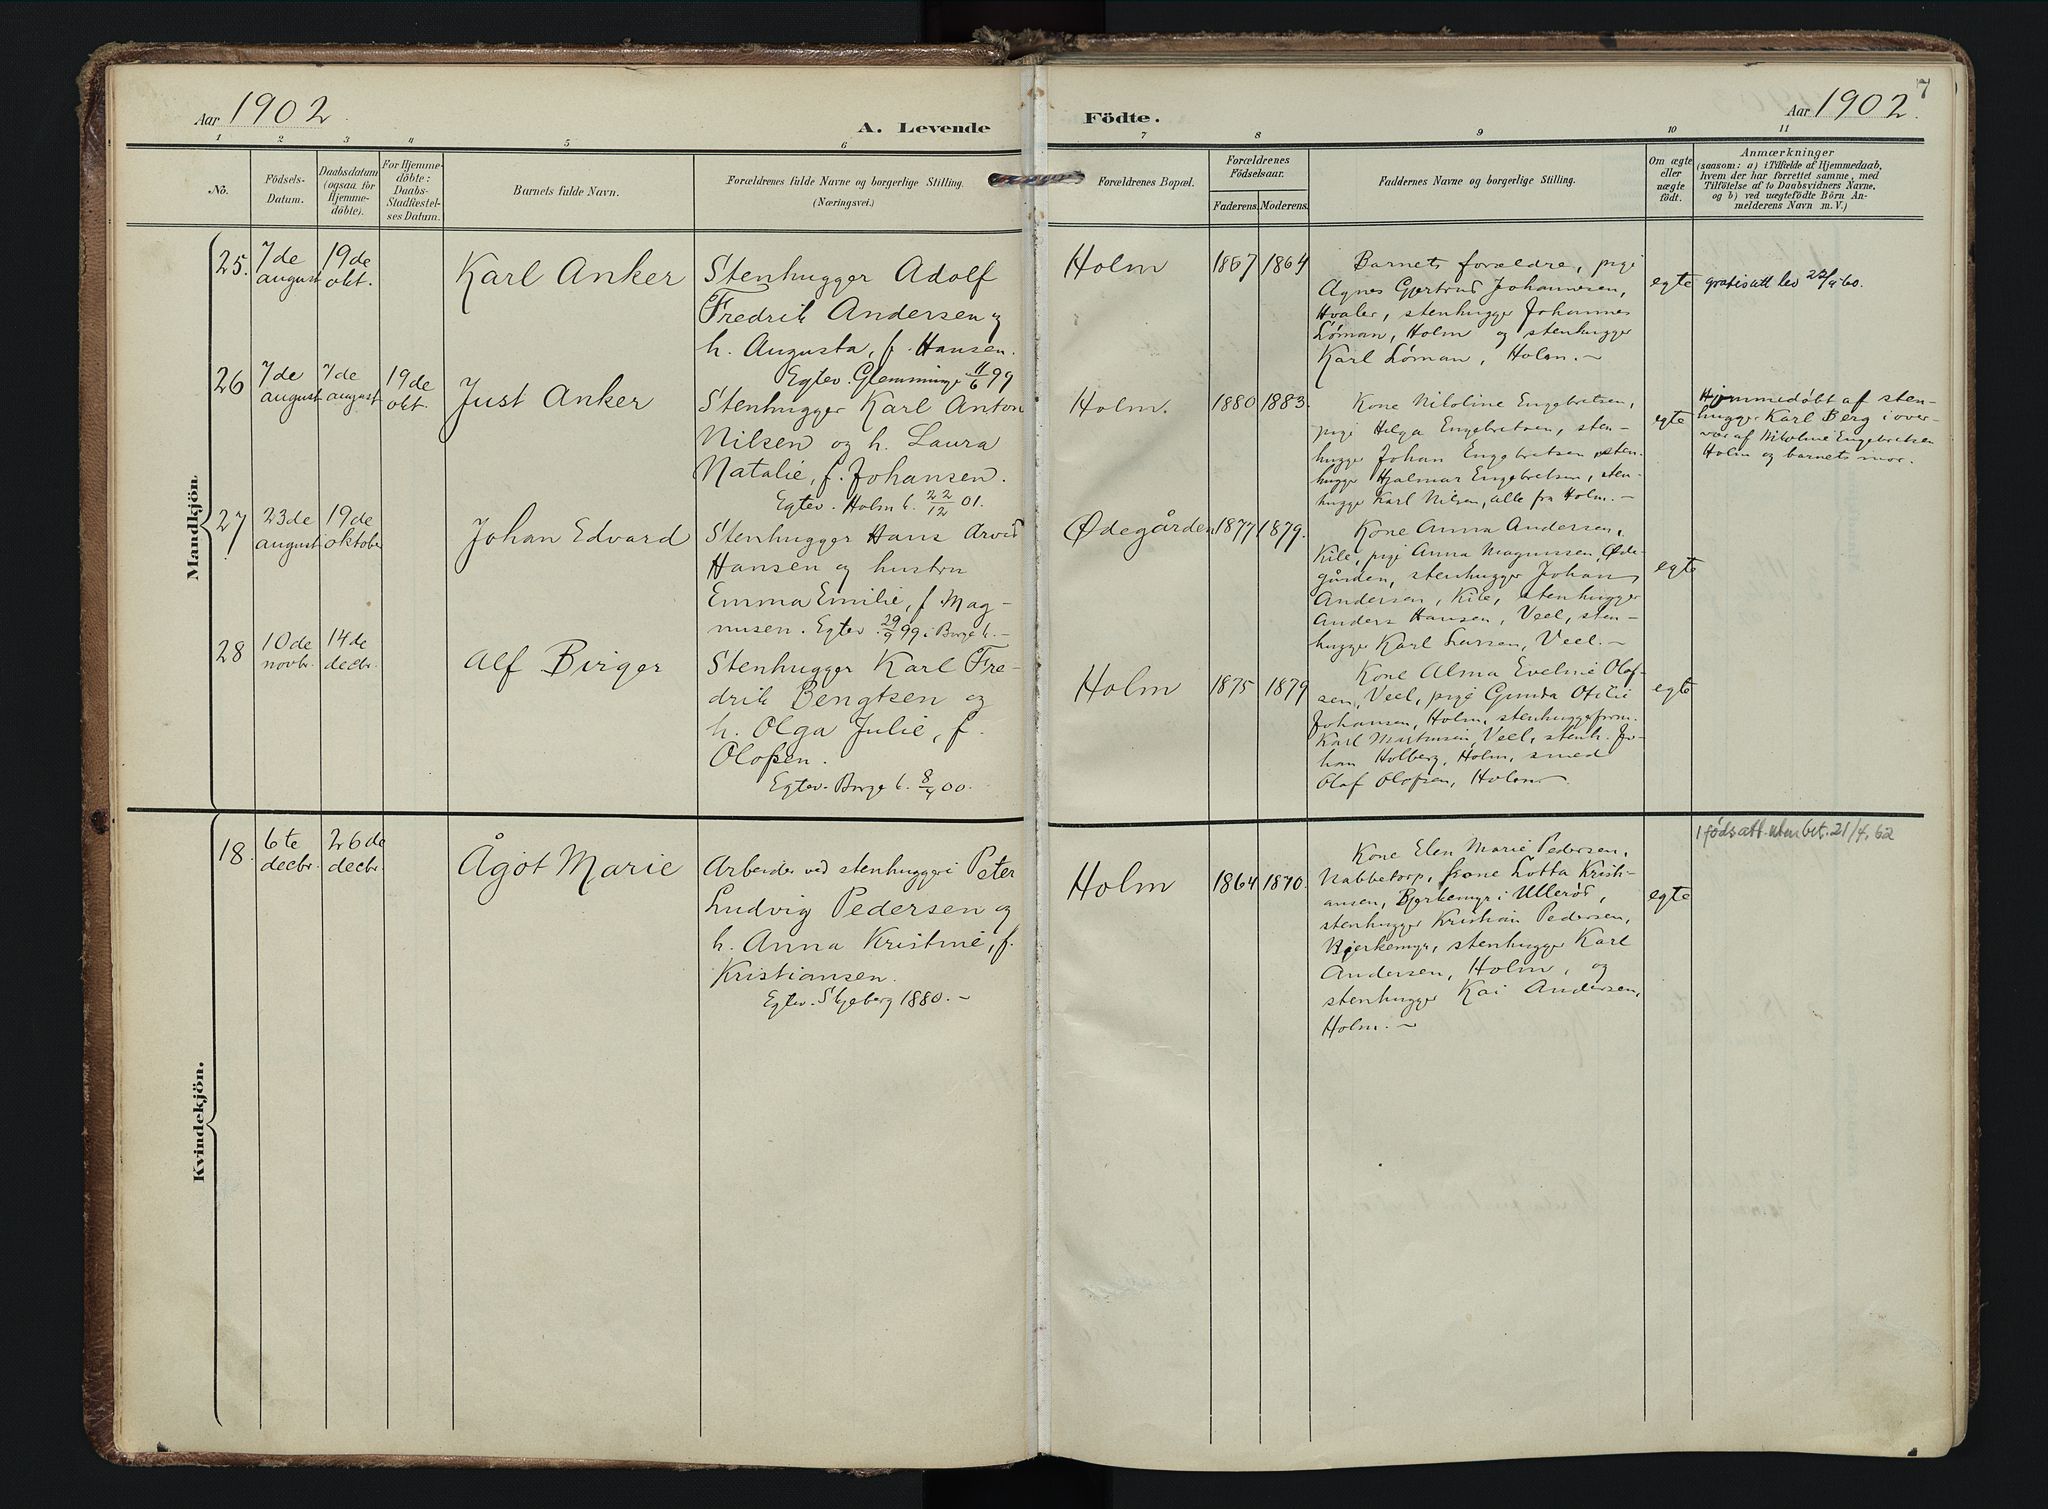 Aar 1902
A. Levende
Födte.
Aar 1902.
7
1 2 3 4 5 6 7 8 9 10 11
No.
Födsels-
Datum.
Daabsdatum
(ogsaa for
Hjemme-
döbte).
For Hjemme-
döbte:
Daabs-
Stadfæstel-
ses Datum.
Barnets fulde Navn.
Forældrenes fulde Navne og borgerlige Stilling.
(Næringsvei.)
Forældrenes Bopæl.
Forældrenes
Födselsaar.
Faderens.
Moderens.
Faddernes Navne og borgerlige Stilling.
Om ægte
eller
uægte
födt.
Anmærkninger
(saasom: a) i Tilfælde af Hjemmedaab,
hvem der har forrettet samme, med
Tilföielse af to Daabsvidners Navne,
og b) ved uægtefödte Börn An-
melderens Navn m. V.)
Mandkjön.
25.
7de
august
19de
okt.
Karl Anker
Stenhugger Adolf
Fredrik Andersen og
h. Augusta, f. Hansen.
Egtev. Glemminge 11/6 99
Holm
1867
1864
Barnets forældre, pige
Agnes Gjertrud Johannesen,
Hvaler, stenhugger Johannes
Löman, Holm og stenhugger
Karl Löman, Holm.-
egte
gratis att lev 22/9 60.
26
7de
august
7de
august
19de
okt.
Just Anker
Stenhugger Karl Anton
Nilsen og h. Laura
Natalie, f. Johansen.
Egtev. Holm k. 22/12 01.
Holm.
1880
1883.
Kone Nikoline Engebretsen,
pige Helga Engebretsen, sten-
hugger Johan Engebretsen, sten-
hugger Hjalmar Engebretsen, sten-
hugger Karl Nilsen, alle fra Holm.-
egte
Hjemmedøbt af sten-
hugger Karl Berg i over-
vær af Nikoline Engebretsen
Holm og barnets mor.
27
23de
august
19de
oktober
Johan Edvard
Stenhugger Hans Arvid
Hansen og hustru
Emma Emilie, f. Mag-
nusen. Egtev. 29/9 99 i Borge k.-
Ødegården
1877
1879.
Kone Anna Andersen,
Kile, pige Anna Magnussen Øde-
gården, stenhugger Johan
Andersen, Kile, stenhugger
Anders Hansen, Veel, sten-
hugger Karl Larsen, Veel.-
egte
28
10de
novbr.
14de
decbr.
Alf Birger
Stenhugger Karl Fre-
drik Bengtsen og
h. Olga Julie, f.
Olofsen.
Egtev. Borge k. 8/4 00.
Holm
1875
1879
Kone Alma Eveline Olaf-
sen, Veel, pige Gunda Otilie
Johansen, Holm, stenhuggerform.
Karl Martinsen, Veel, stenh. Jo-
han Holberg, Holm, smed
Olaf Olofsen, Holm
egte
Kvindekjön.
18.
6te
decbr.
26de
decbr.
Ågot Marie
Arbeider ved stenhuggeri Peter
Ludvig Pedersen og
h. Anna Kristine, f.
Kristiansen.
Egtev. Skjeberg 1880.-
Holm
1864
1870.
Kone Elen Marie Pedersen,
Nabbetorp, kone Lotta Kristi-
ansen, Bjerkemyr i Ullerød,
stenhugger Kristian Pedersen,
Bjerkemyr, stenhugger Karl
Andersen, Holm, og
stenhugger Kai Andersen,
Holm.-
egte
1 föds att. uten bet. 21/4.62